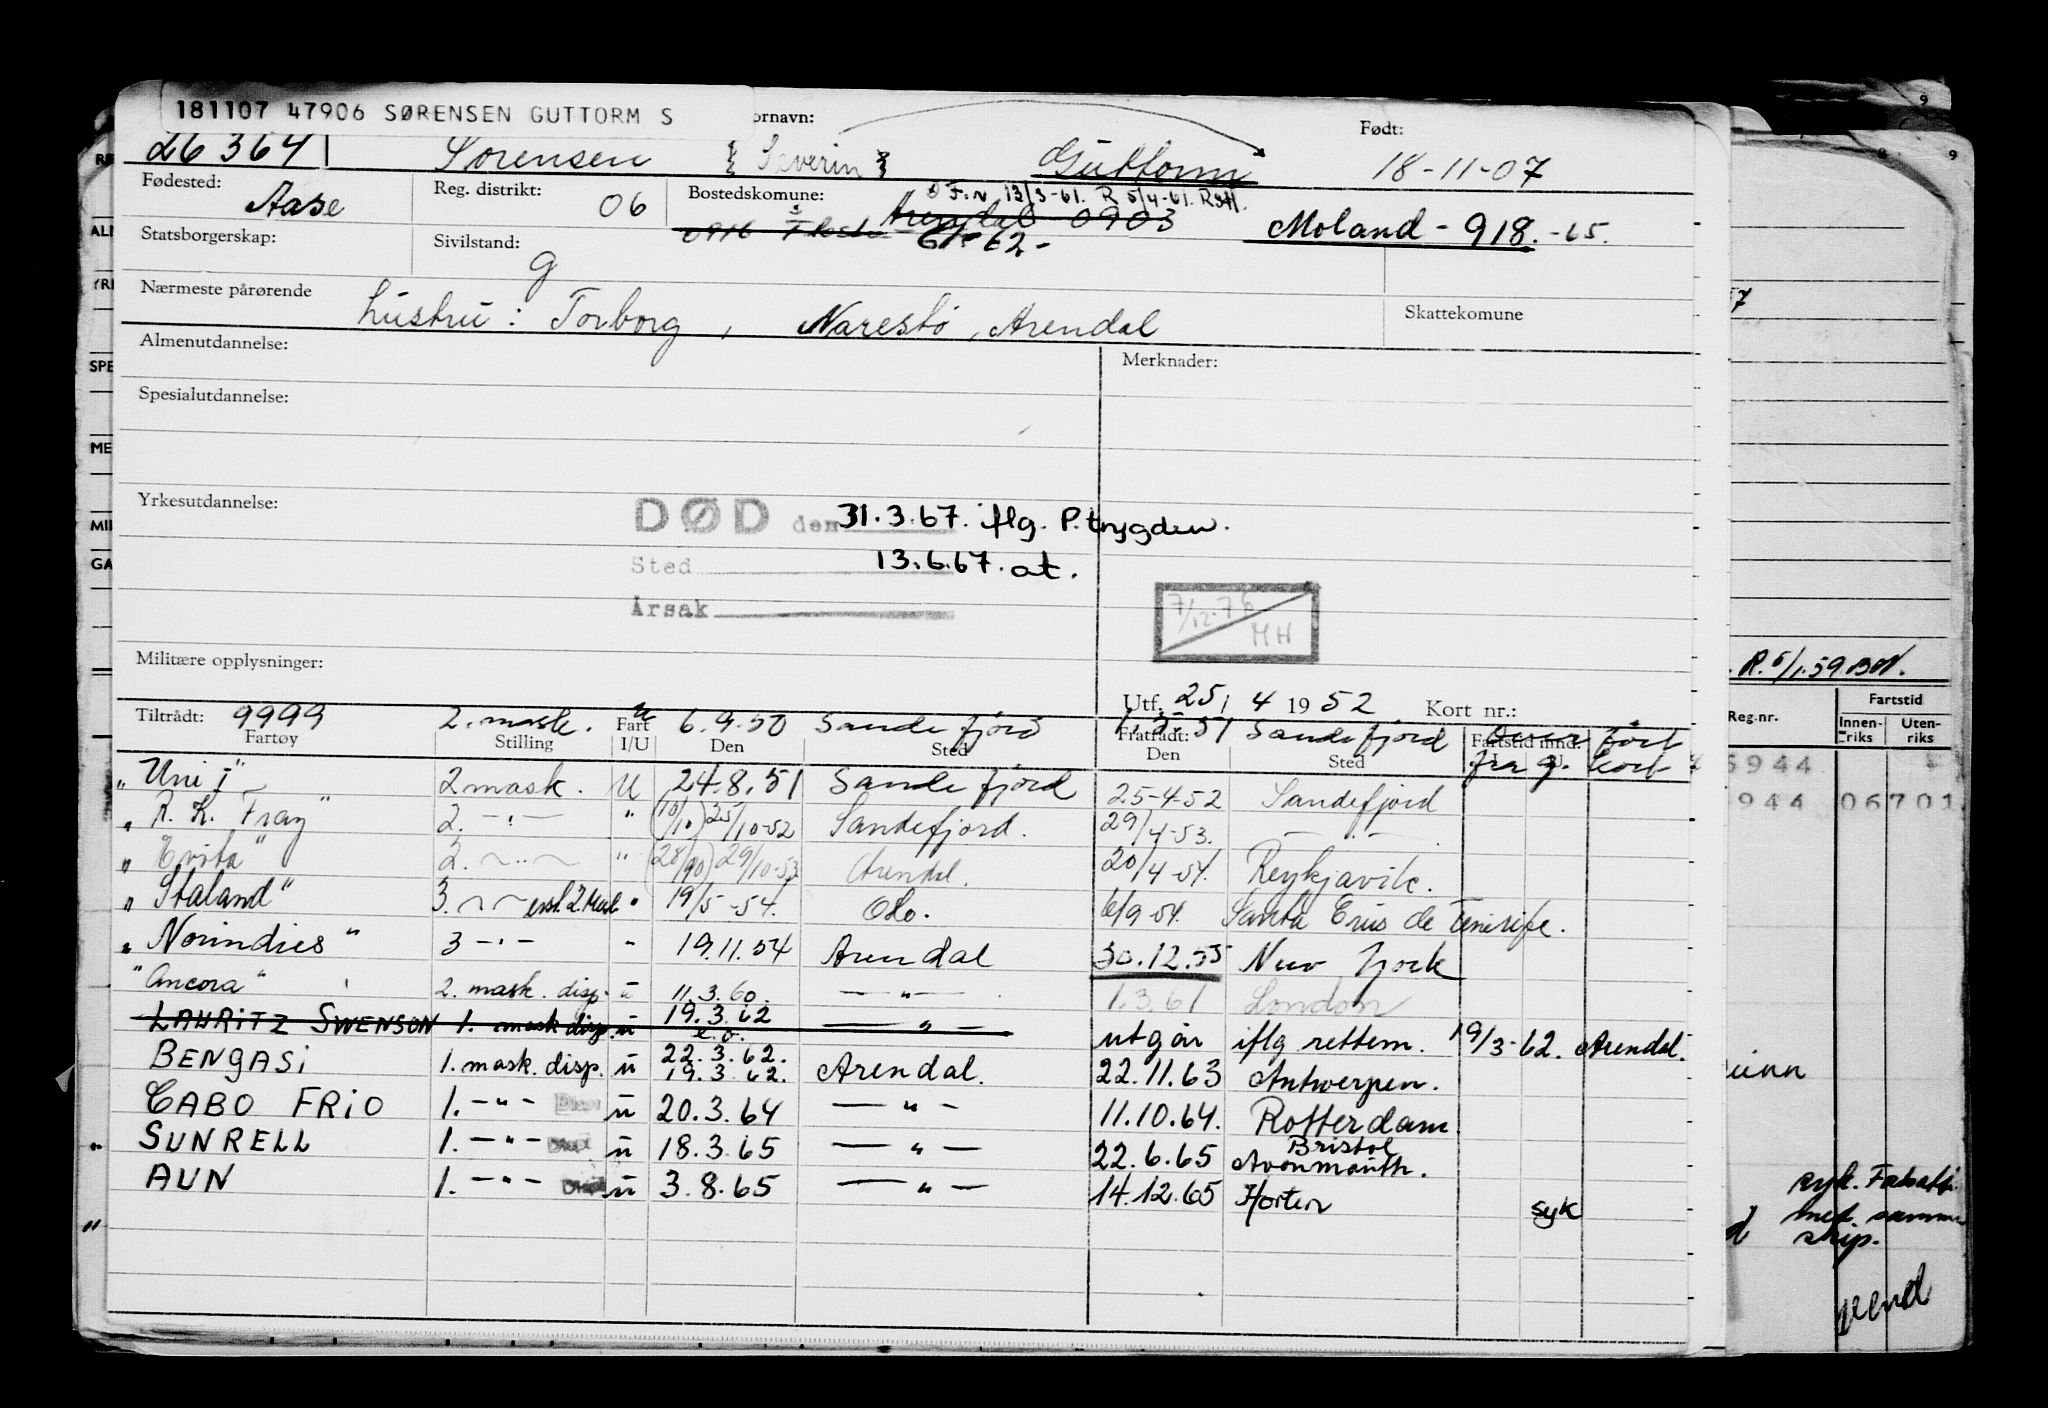 181107 47906 SØRENSEN GUTTORM S
ornavn: Født:
26364 Sørensen { Severin } Guttorm 18-11-07
Fødested: Aase Reg. distrikt: 06 Bostedskomune: F.n 13/3-61. R 5/4-61.
0916 Flosta Arendal 0903 Moland - 918. -65.
Statsborgerskap: Sivilstand: g 61-62-
Nærmeste pårørende hustru: Torborg, Narestø, Arendal Skattekomune
Almenutdannelse: Merknader:
Spesialutdannelse:
Yrkesutdannelse:
DØD den 31.3.67. iflg. P.trygden.
Sted 13.6.67. at.
Årsak
7/12-76 MH
Militære opplysninger:
Utf. 25/4 1952 Kort nr.:
Tiltrådt: 9999 2. mask. u 6.9.50 Sandefjord Fratrådt: 1.5.51 Sandefjord Over ført
Fartøy Stilling Fart I/U Den Sted Den Sted Fartstid innd. fra g. kort
"Uni I" 2 mask. U 24.8.51 Sandefjord 25-4-52 Sandefjord
"R. K. Fray" 2. -"- " (10/10) 25/10-52 Sandefjord. 29/4-53. -"-
"Evita" 2. -"- " (28/10) 29/10-53 Arendal. 20/4-54. Reykjavik.
"Staland" 3. -"- " 19/5-54. Oslo. 6/9-54. Santa Crus de Tenerife.
"Norindies" 3 -"- " 19.11.54 Arendal 30.12.55 New York
"Ancora" 2. mask. disp. u 11.3.60. -"- 1.3.61 London
LAURITZ SWENSON 1. mask disp. u 19.3.62 -"- utgår iflg rettem. 19/3-62. Arendal.
e.o.
BENGASI 1. mask. disp. u 22.3.62. 19.3.62. Arendal. 22.11.63 Antwerpen.
CABO FRIO 1. -"- Disp u 20.3.64 -"- 11.10.64. Rotterdam
SUNRELL 1. -"- u 18.3.65 -"- 22.6.65 Bristol Avonmouth.
AUN 1. -"- u 3.8.65 -"- 14.12.65 Horten syk
9
8 9
AL
YR
SPE
ME
MI
GA
R. 5/1.59
Reg.nr. Fartstid
Innenriks Utenriks
5944
944 06701
med. samme
skip.